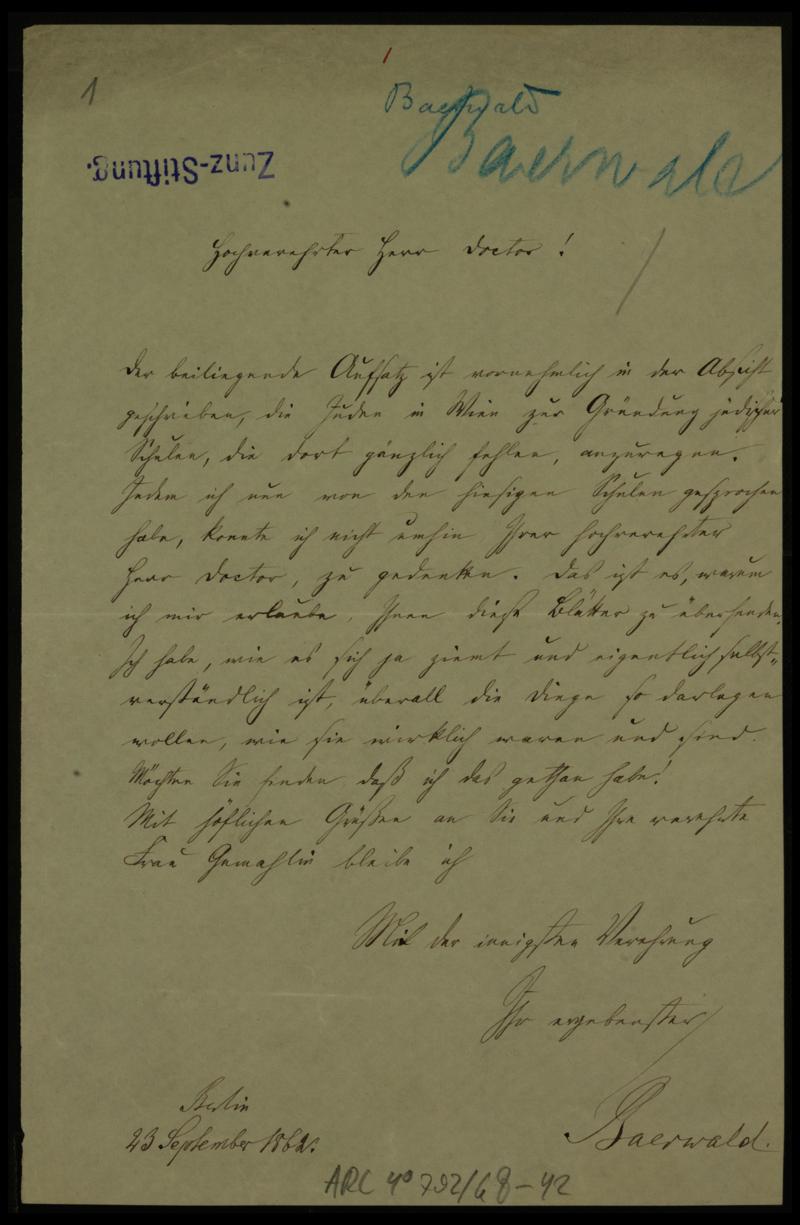 1
Baerwald
Baerwald
Zunz-Stiftung.
Hochverehrter Herr Doctor!
Der beiliegende Aufsatz ist vornehmlich in der Absicht
geschrieben, die Juden in Wien zur Gründung jüdischer
Schulen, die dort gänzlich fehlen, anzuregen.
Indem ich nun von den hiesigen Schulen gesprochen
habe, konnte ich nicht umhin Ihrer hochverehrter
Herr Doctor, zu gedenken. Das ist es, warum
ich mir erlaube, Ihnen diese Blätter zu übersenden.
Ich habe, wie es sich ja ziemt und eigentlich selbst-
verständlich ist, überall die Dinge so darlegen
wollen, wie sie wirklich waren und sind.
Möchten Sie finden daß ich das gethan habe!
Mit höflichen Grüßen an Sie und Ihre verehrte
Frau Gemahlin bleibe ich
Mit der innigsten Verehrung
Ihr ergebenster
Baerwald.
Berlin
23 September 1862.
ARC 4° 792/G8-42